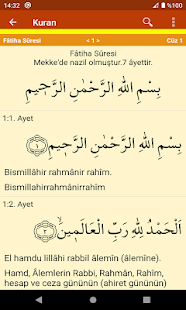 14:32 %100
Kuran
Fâtiha Sûresi < 1 > Cüz 1
Fâtiha Sûresi
Mekke'de nazil olmuştur.7 âyettir.
بِسْمِ اللّٰهِ الرَّحْمٰنِ الرَّح۪يمِ
1:1. Ayet
بِسْمِ اللّٰهِ الرَّحْمٰنِ الرَّح۪يمِ ﴿١﴾
Bismillâhir rahmânir rahîm
Bismillahirrahmanirrahîm
1:2. Ayet
اَلْحَمْدُ لِلّٰهِ رَبِّ الْعَالَم۪ينَۙ ﴿٢﴾
El hamdu lillâhi rabbil âlemîn (âlemîne).
Hamd, Âlemlerin Rabbi, Rahmân, Rahîm,
hesap ve ceza gününün (ahiret gününün)